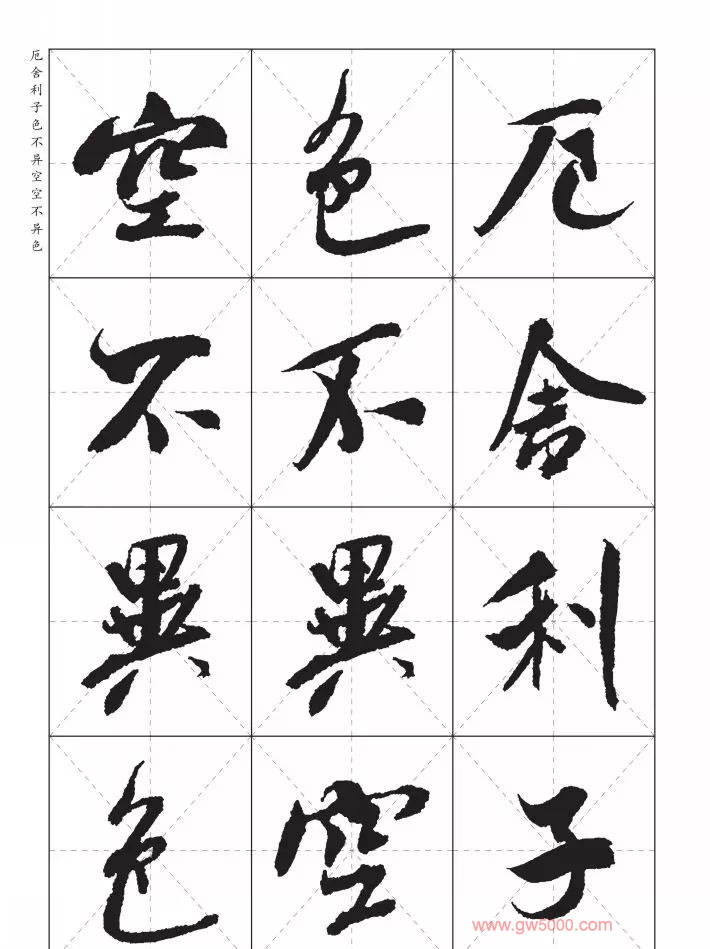 厄舍利子色不异空空不异色
厄舍利子
色不異空
空不異色
www.gw5000.com